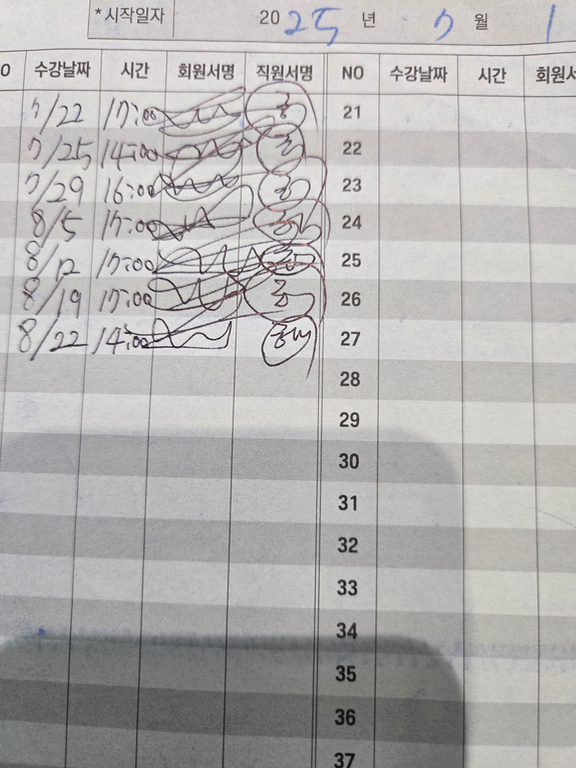 *시작일자 2025년 7월 1
O 수강날짜 시간 회원서명 직원서명 NO 수강날짜 시간 회원서
7/22 17:00 홍 21
7/25 14:00 22
7/29 16:00 홍 23
8/5 17:00 홍 24
8/12 17:00 홍 25
8/19 17:00 홍 26
8/22 14:00 27
28
29
30
31
32
33
34
35
36
37